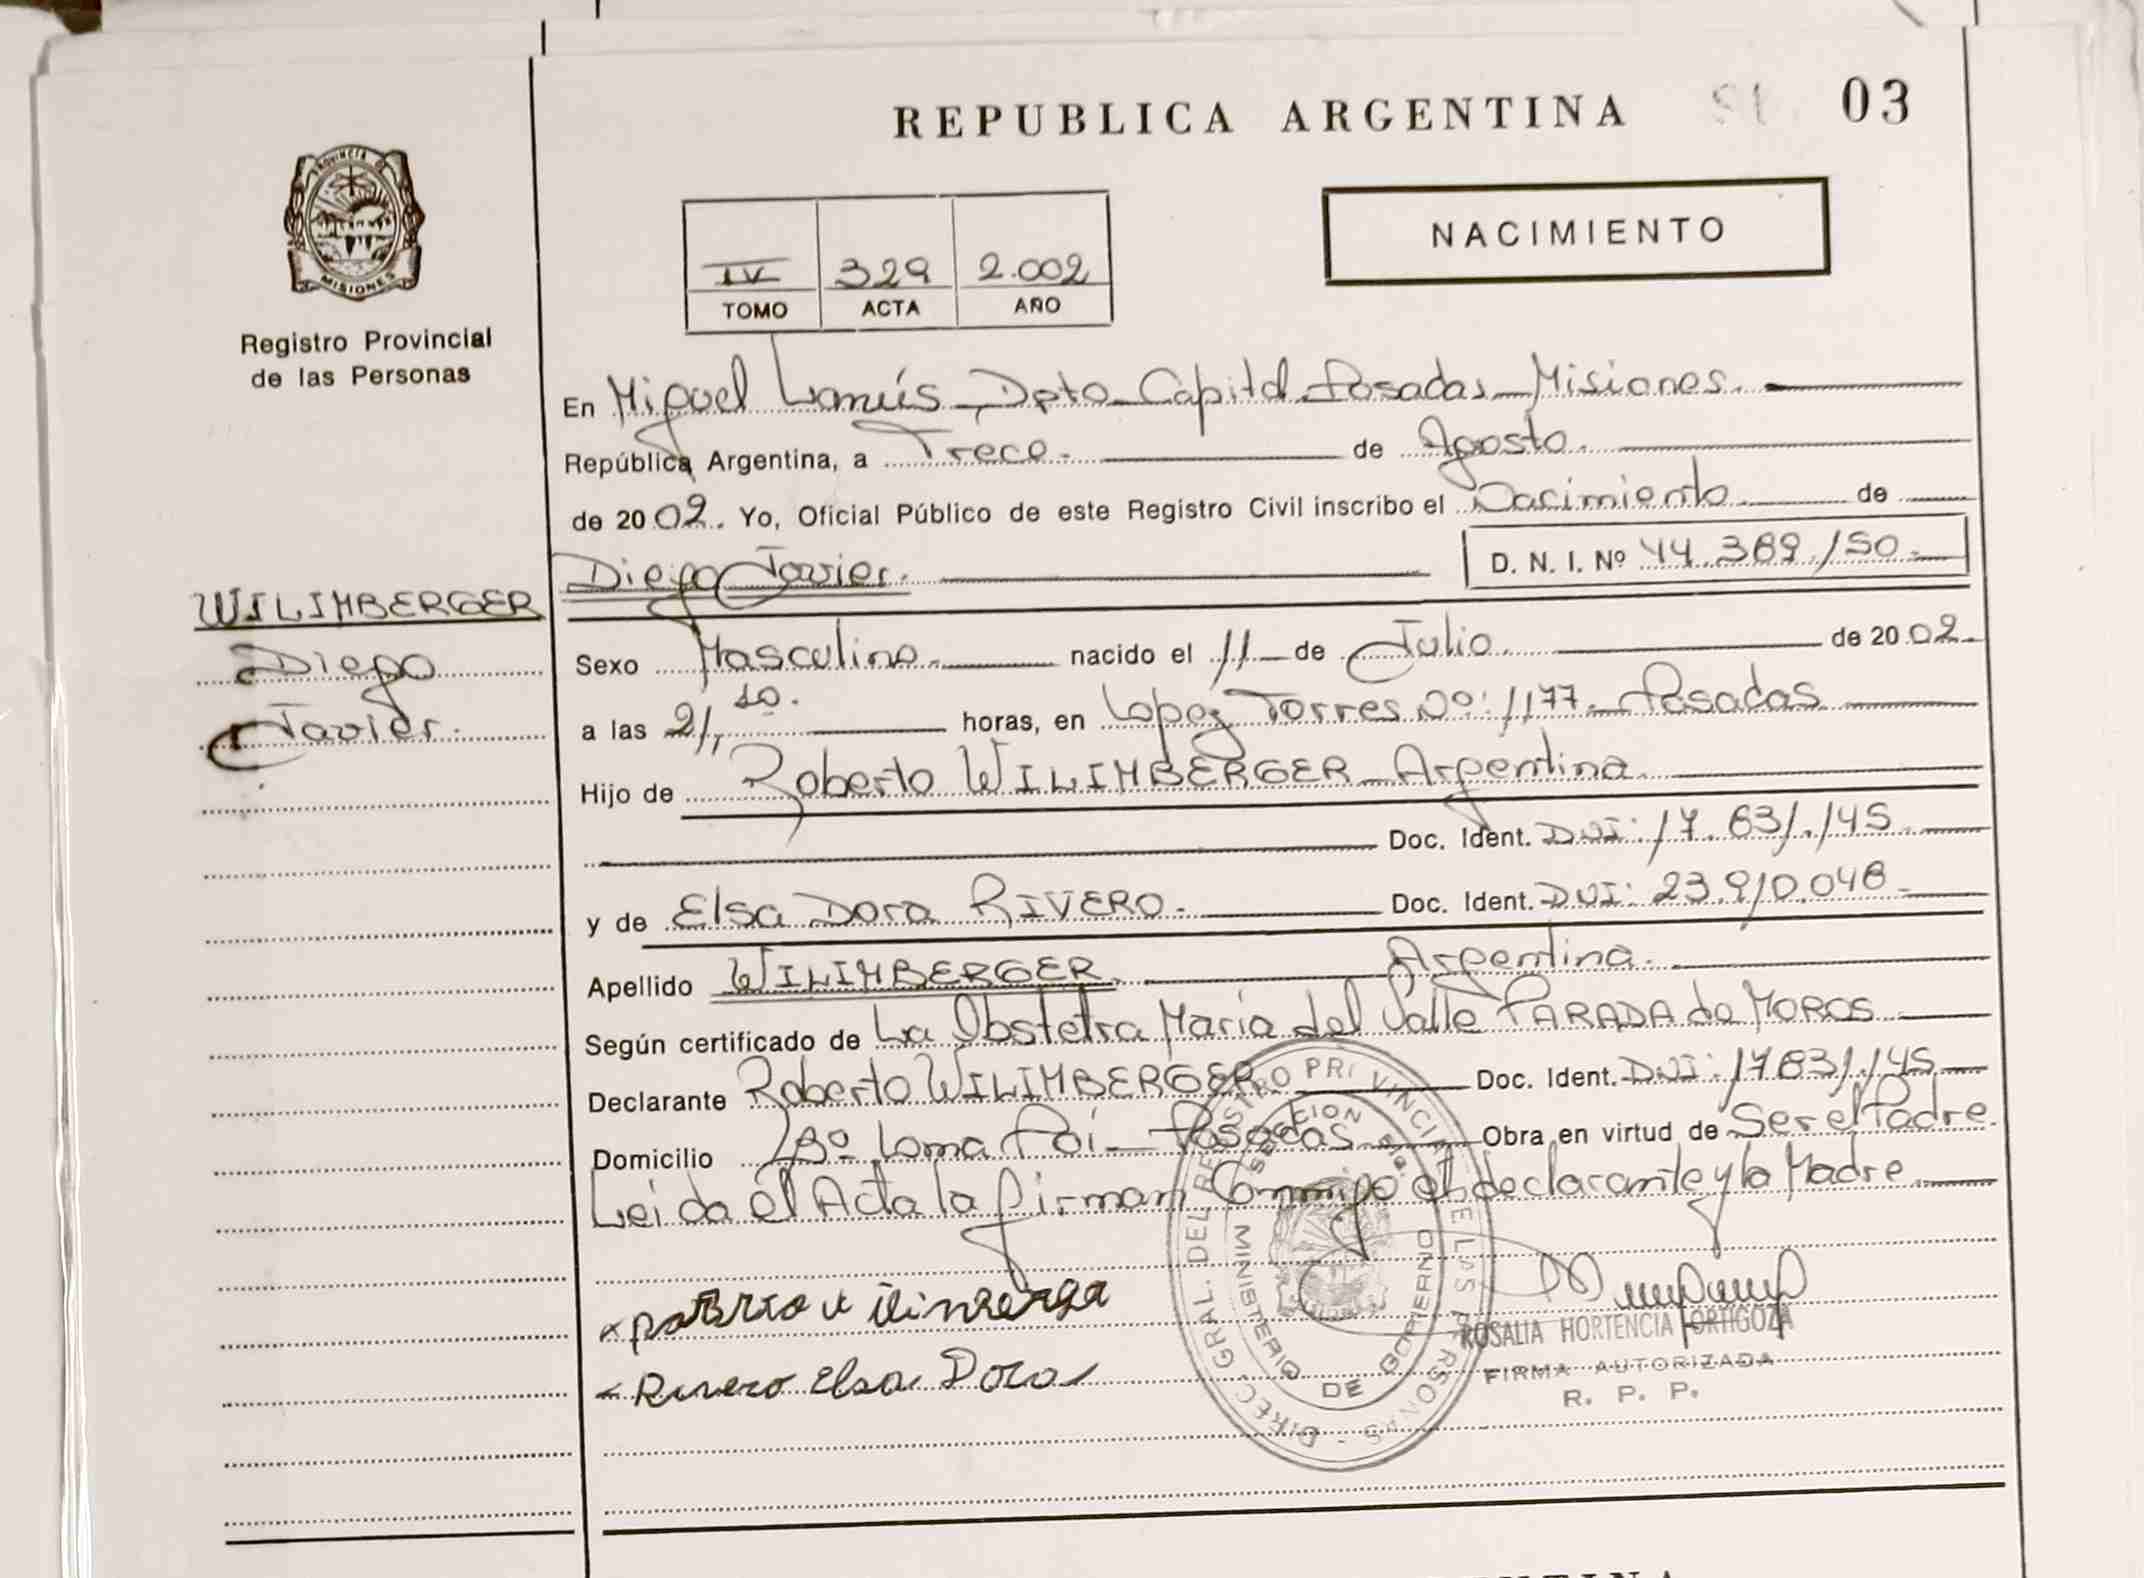 REPUBLICA ARGENTINA 03
PROVINCIA DE
MISIONES
Registro Provincial
de las Personas
NACIMIENTO
IV 329 2.002
TOMO ACTA AÑO
En Miguel Lanús Dpto Capital Posadas Misiones
República Argentina, a Trece de Agosto
de 2002. Yo, Oficial Público de este Registro Civil inscribo el Nacimiento de
Diego Javier. D. N. I. Nº 44.389.150
WILIMBERGER
Diego
Javier.
Sexo Masculino nacido el 11 de Julio de 2002
a las 21,50. horas, en Lopez Torres Nº: 1177 Posadas
Hijo de Roberto WILIMBERGER Argentina
Doc. Ident. DNI: 17.831.145
y de Elsa Dora RIVERO. Doc. Ident. DNI: 23.910.048
Apellido WILIMBERGER. Argentina.
Según certificado de La Obstetra María del Valle PARADA de MOROS
Declarante Roberto WILIMBERGER Doc. Ident. DNI: 17831.145
Domicilio Bº Loma Poí Posadas Obra en virtud de Ser el Padre
Leída el Acta la firman Conmigo el declarante y la Madre
Rivero Elsa Dora
ROSALIA HORTENCIA ORTIGOZA
FIRMA AUTORIZADA
R. P. P.
DIREC. GRAL. DEL REGISTRO PROVINCIAL DE LAS PERSONAS
MINISTERIO DE GOBIERNO